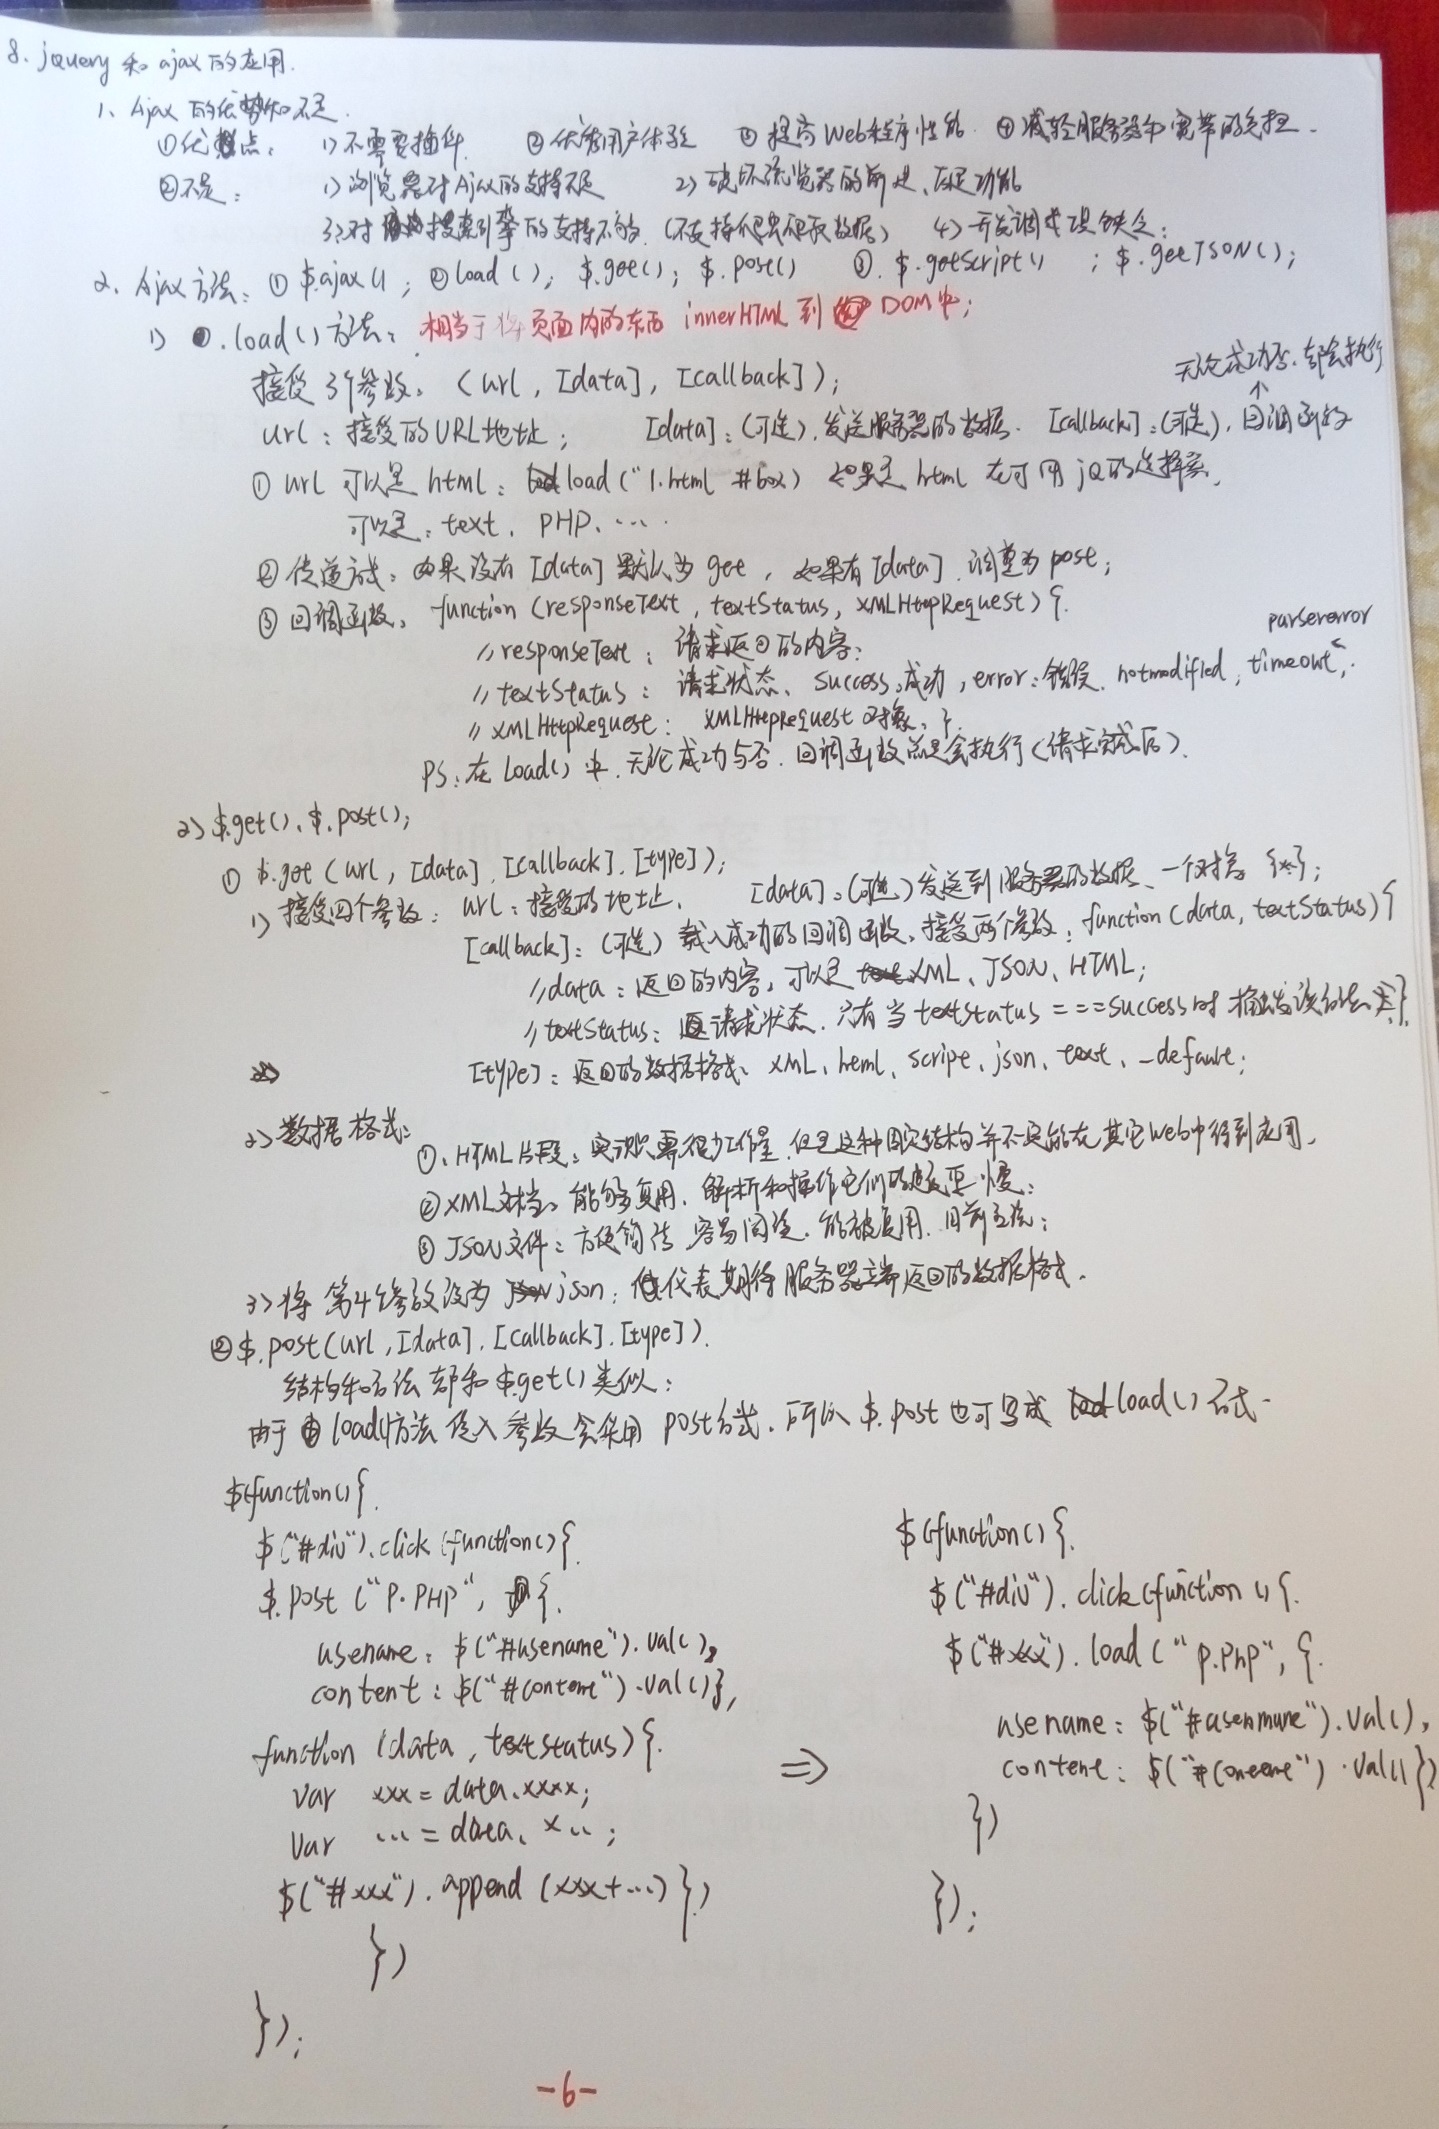 8、jquery 和 ajax 的应用.
1、Ajax 的优势和不足.
①优点: 1>不需要插件 ②优秀用户体验 ③提高Web程序性能 ④减轻服务器和宽带的负担.
②不足: 1>浏览器对Ajax的支持不足 2>破坏浏览器的前进、后退功能
3>对搜索引擎的支持不够.(不支持爬虫爬取数据) 4>开发调试工具缺乏;
2、Ajax方法: ①$.ajax(); ②load(); $.get(); $.post() ③.$.getScript(); $.getJSON();
1> .load()方法: 相当于将页面内的东西 innerHTML 到 DOM中;
无论成功否.都会执行
接受3个参数:(url,[data],[callback]);
url:接受的URL地址; [data]:(可选),发送服务器的数据. [callback]:(可选),回调函数
① url 可以是 html: load("1.html #box) 如果是 html 在可用jQ的选择器,
可以是:text、PHP、...
②传递方式:如果没有[data]默认为get,如果有[data].调整为post;
③回调函数: function(responseText,textStatus,XMLHttpRequest){.
//responseText: 请求返回的内容;
parsererror
//textStatus: 请求状态、success:成功,error:错误、notmodified,timeout;
//XMLHttpRequest: XMLHttpRequest对象、}
PS:在load()中.无论成功与否.回调函数总是会执行(请求完成后).
2>$.get()、$.post();
① $.get(url,[data].[callback].[type]);
1>接受四个参数: url:接受的地址、 [data]:(可选)发送到服务器的数据、一个对象{*};
[callback]:(可选)载入成功的回调函数、接受两个参数:function(data,textStatus){
//data:返回的内容,可以是XML、JSON、HTML;
//textStatus: 请求状态.只有当textStatus===success时
[type]:返回的数据格式、XML、html、script、json、text、_default;
2>数据格式:
①、HTML片段:实现只需很少工作量.但是这种固定结构并不一定能在其它Web中得到应用.
②XML文档:能够复用.解析和操作它们的速度更慢;
③JSON文件:方便简洁.容易阅读.能被复用.目前主流;
3>将第4个参数设为json:代表期待服务器端返回的数据格式.
②$.post(url,[data].[callback].[type]).
结构和方法都和$.get()类似;
由于load()方法传入参数会采用post方式.所以$.post也可写成load()方式.
$(function(){.
$("#div").click(function(){.
$.post("P.PHP",{.
usename:$("#usename").val(),
content:$("#content").val()},
function(data,textStatus){.
var xxx=data.xxxx;
var ...=data.x..;
$("#xxx").append(xxx+...)})
})
});
⇒
$(function(){.
$("#div").click(function(){.
$("#xxx").load("p.php",{.
usename:$("#usenmune").val(),
content:$("#content").val()})
})
});
-6-